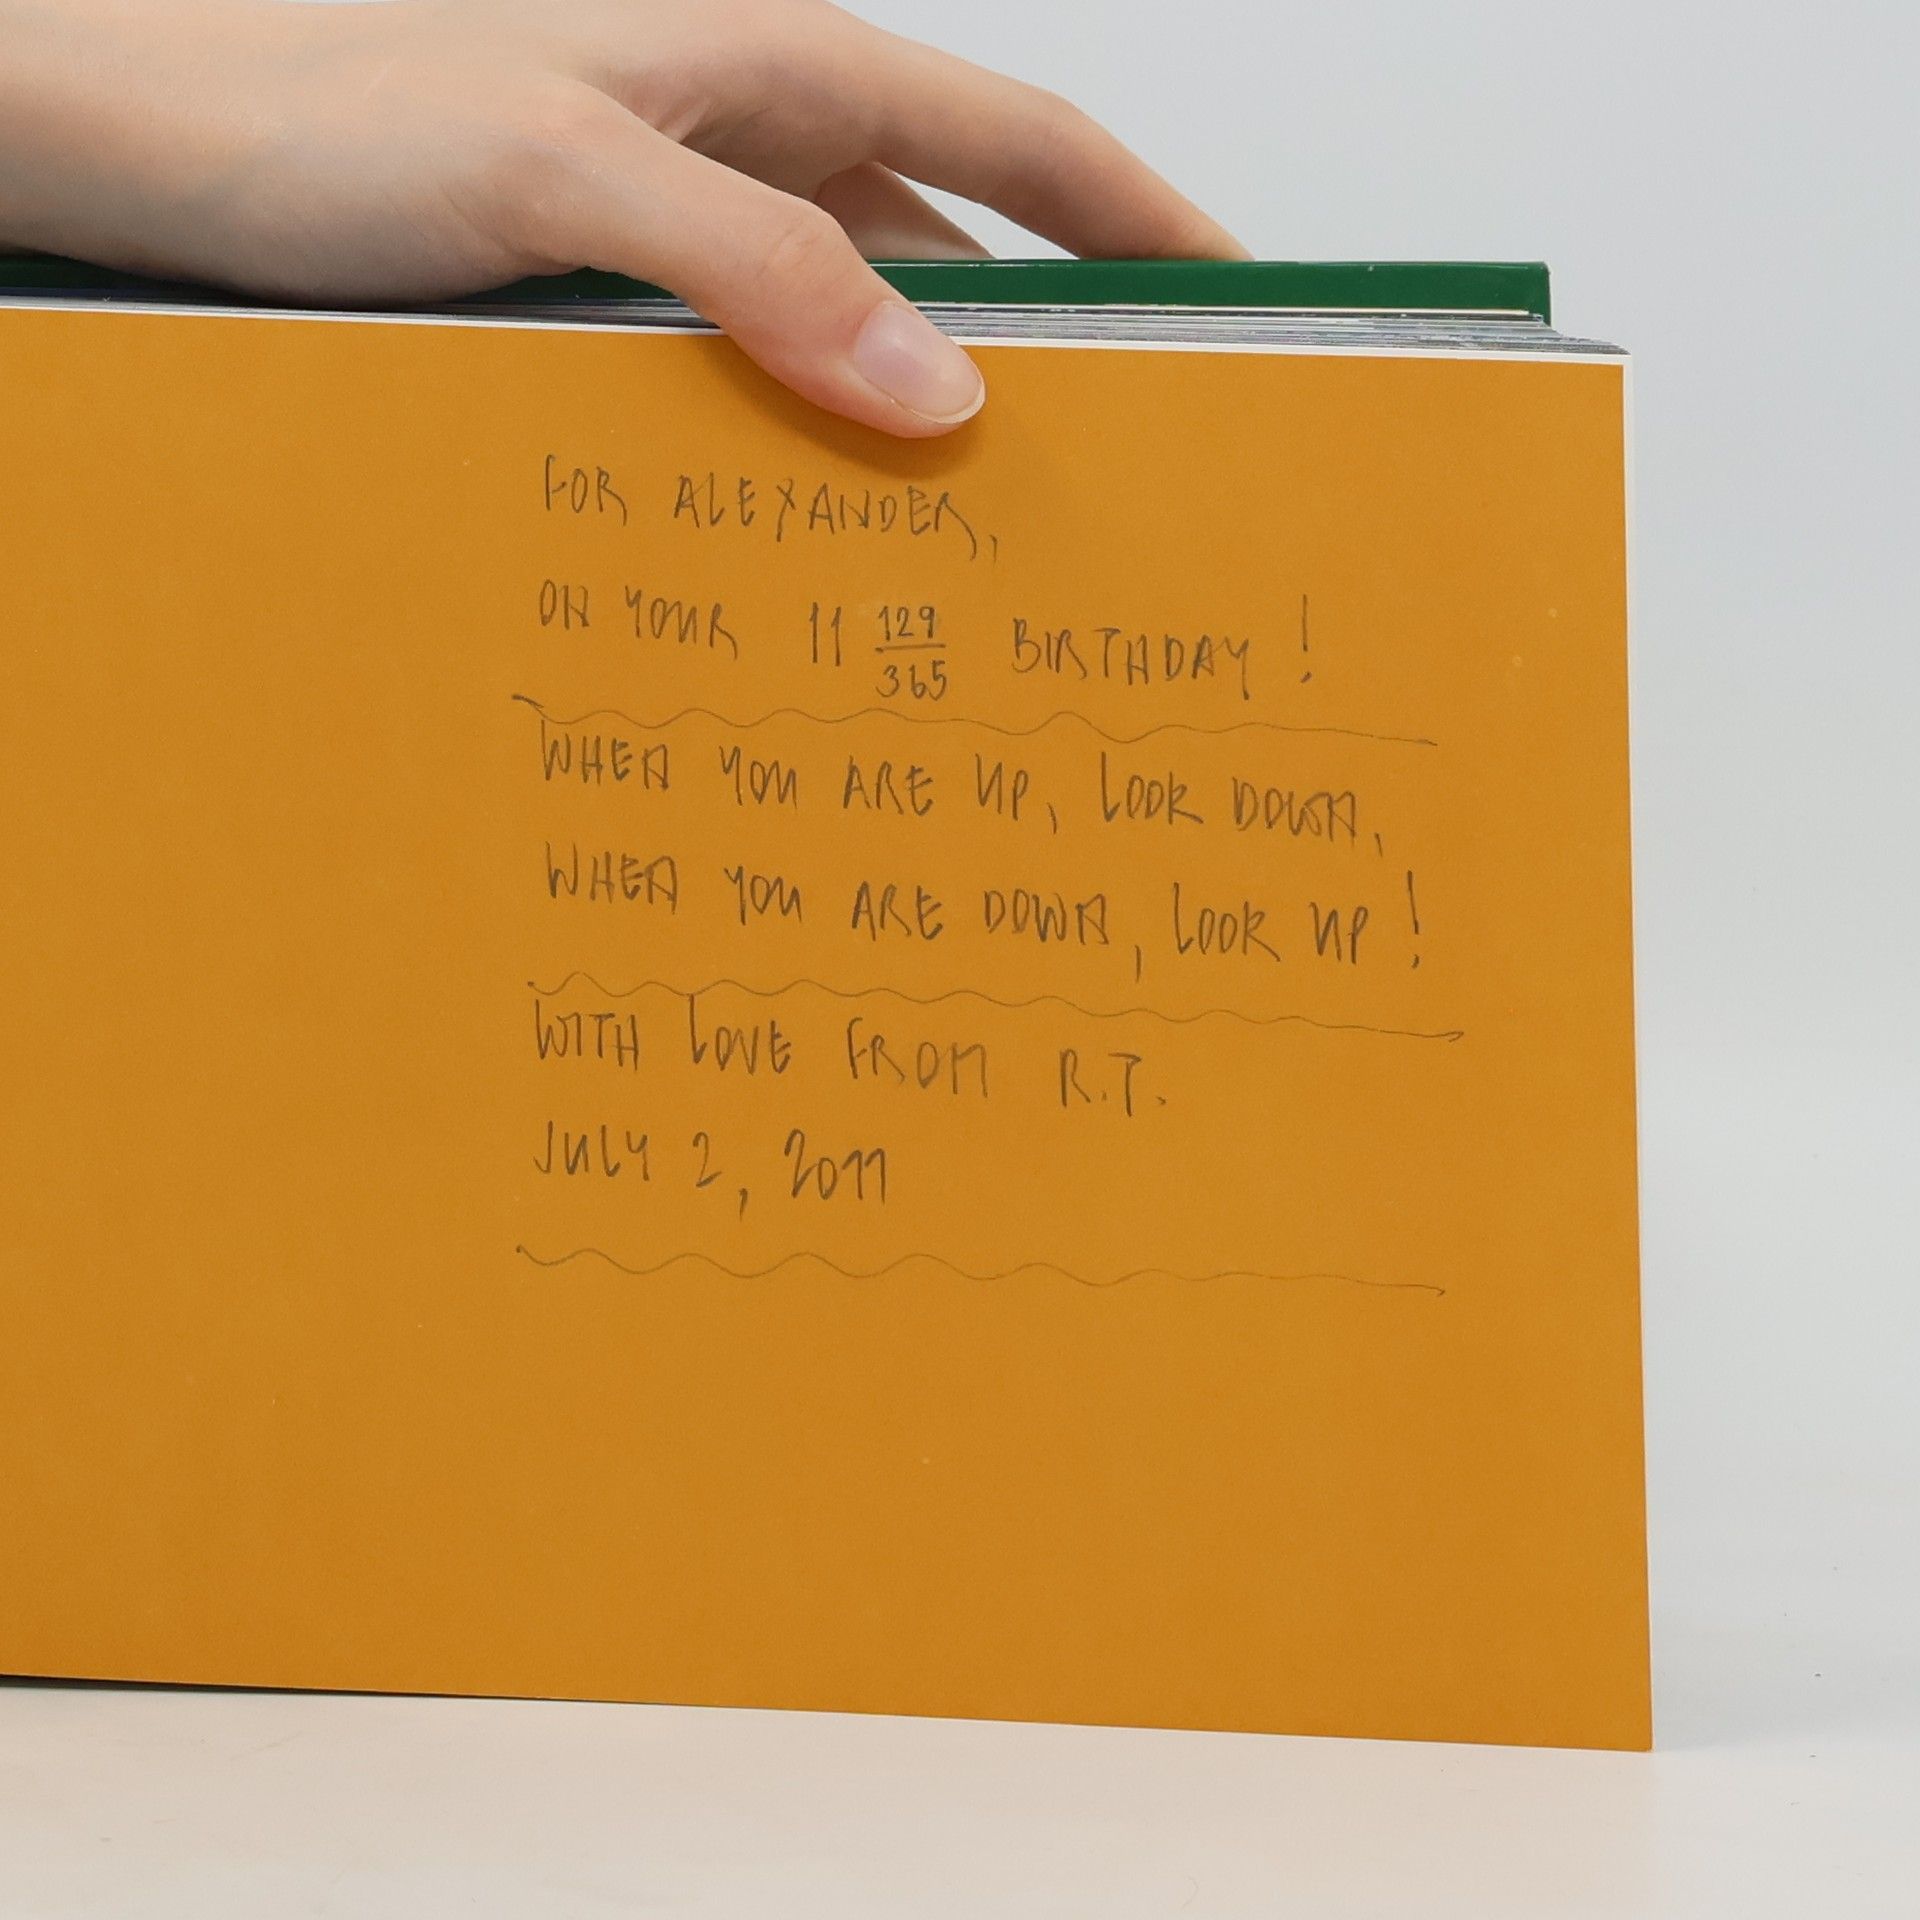 FOR ALEXANDER,
ON YOUR 11 129/365 BIRTHDAY!
WHEN YOU ARE UP, LOOK DOWN,
WHEN YOU ARE DOWN, LOOK UP!
WITH LOVE FROM R.T.
JULY 2, 2011